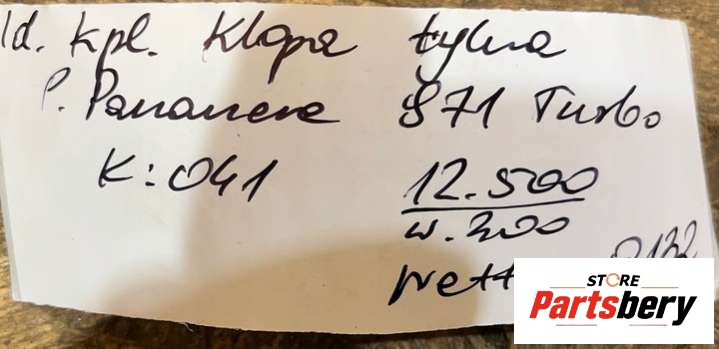 Id. kpl. Klapa tylna
P. Panamera 971 Turbo
K: 041
12.500
w. 200
nett
0132
STORE
Partsbery